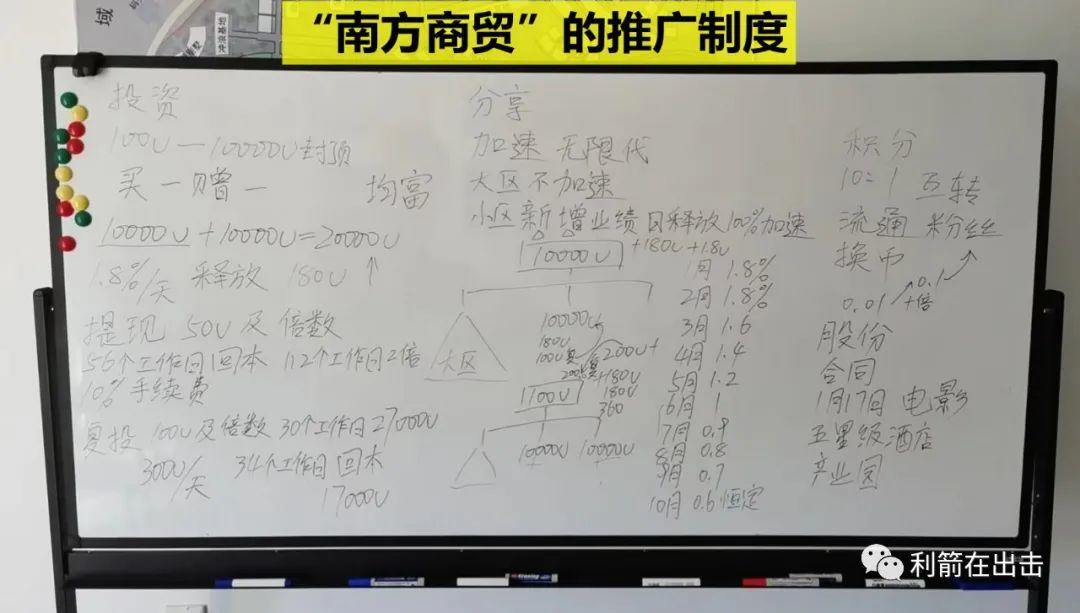 “南方商贸”的推广制度
域
冲浪基地
投资
100U — 10000U封顶
买一赠一 均富
10000U+10000U=20000U
1.8%/天 释放 180U ↑
提现 50U 及 倍数
56个工作日回本 112个工作日2倍
10% 手续费
复投 100U及倍数 30个工作日 27000U
300U/天 34个工作日回本
17000U
分享
加速 无限代
大区 不加速
小区 新增业绩 日释放100%加速
10000U +180U+1.8U
大区
10000U
180U
200U+
+180U
1100U
180U
360
10000U 10000U
1月 1.8%
2月 1.8%
3月 1.6
4月 1.4
5月 1.2
6月 1
7月 0.9
8月 0.8
9月 0.7
10月 0.6 恒定
积分
10=1 互转
流通 粉丝
换币
0.01 ↗ 0.1
+倍
股份
合同
1月17日 电影
五星级酒店
产业园
利箭在出击